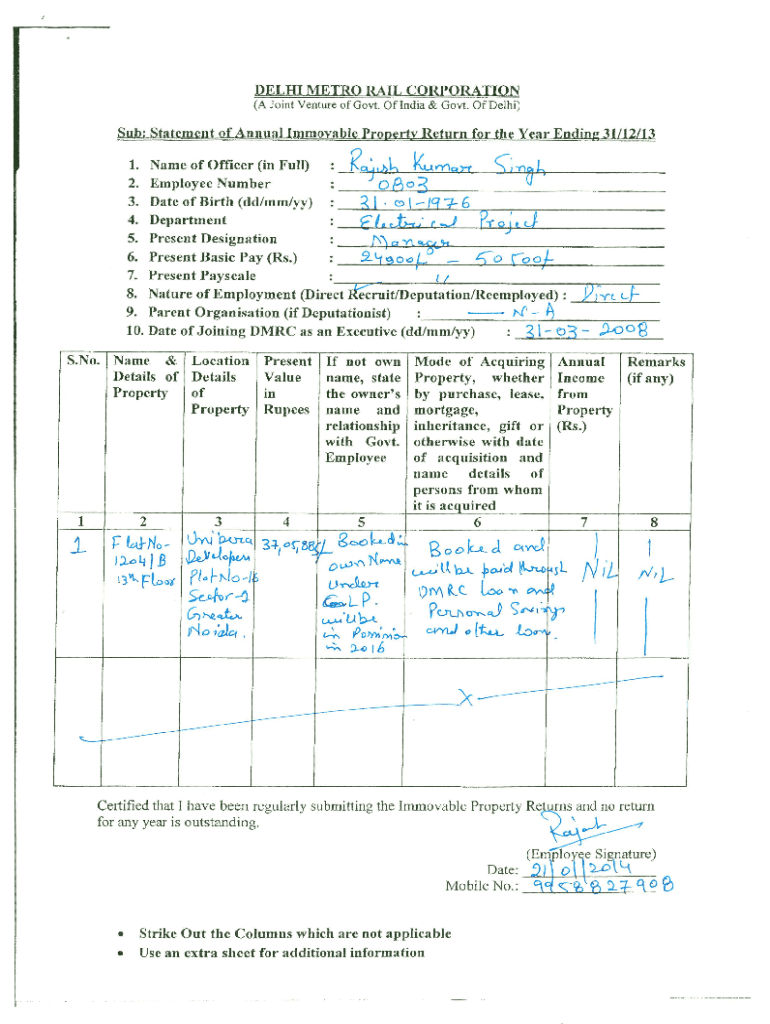 DELHI METRO RAIL CORPORATION
(A Joint Venture of Govt. Of India & Govt. Of Delhi)
Sub: Statement of Annual Immovable Property Return for the Year Ending 31/12/13
1. Name of Officer (in Full) : Rajesh Kumar Singh
2. Employee Number : 0803
3. Date of Birth (dd/mm/yy) : 31.01-1976
4. Department : Electrical Project
5. Present Designation : Manager
6. Present Basic Pay (Rs.) : 24900/- - 50500/-
7. Present Payscale : "
8. Nature of Employment (Direct Recruit/Deputation/Reemployed) : Direct
9. Parent Organisation (if Deputationist) : — N-A
10. Date of Joining DMRC as an Executive (dd/mm/yy) : 31-03-2008
S.No. Name & Details of Property Location Details of Property Present Value in Rupees If not own name, state the owner's name and relationship with Govt. Employee Mode of Acquiring Property, whether by purchase, lease, mortgage, inheritance, gift or otherwise with date of acquisition and name details of persons from whom it is acquired Annual Income from Property (Rs.) Remarks (if any)
1 2 3 4 5 6 7 8
1
Flat No-
1204/B
13th Floor
Unibera
Developers
Plot No-16
Sector-2
Greater
Noida.
37,05,885/-
Booked in
own Name
under
LP.
will be
in Possession
in 2016
Booked and
will be paid through
DMRC loan and
Personal Savings
and other loan.
NIL
NIL
X
Certified that I have been regularly submitting the Immovable Property Returns and no return
for any year is outstanding.
Rajesh
(Employee Signature)
Date: 21/01/2014
Mobile No.: 9958827908
• Strike Out the Columns which are not applicable
• Use an extra sheet for additional information